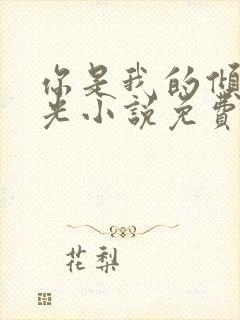 你是我的倾
光小說免費
花梨